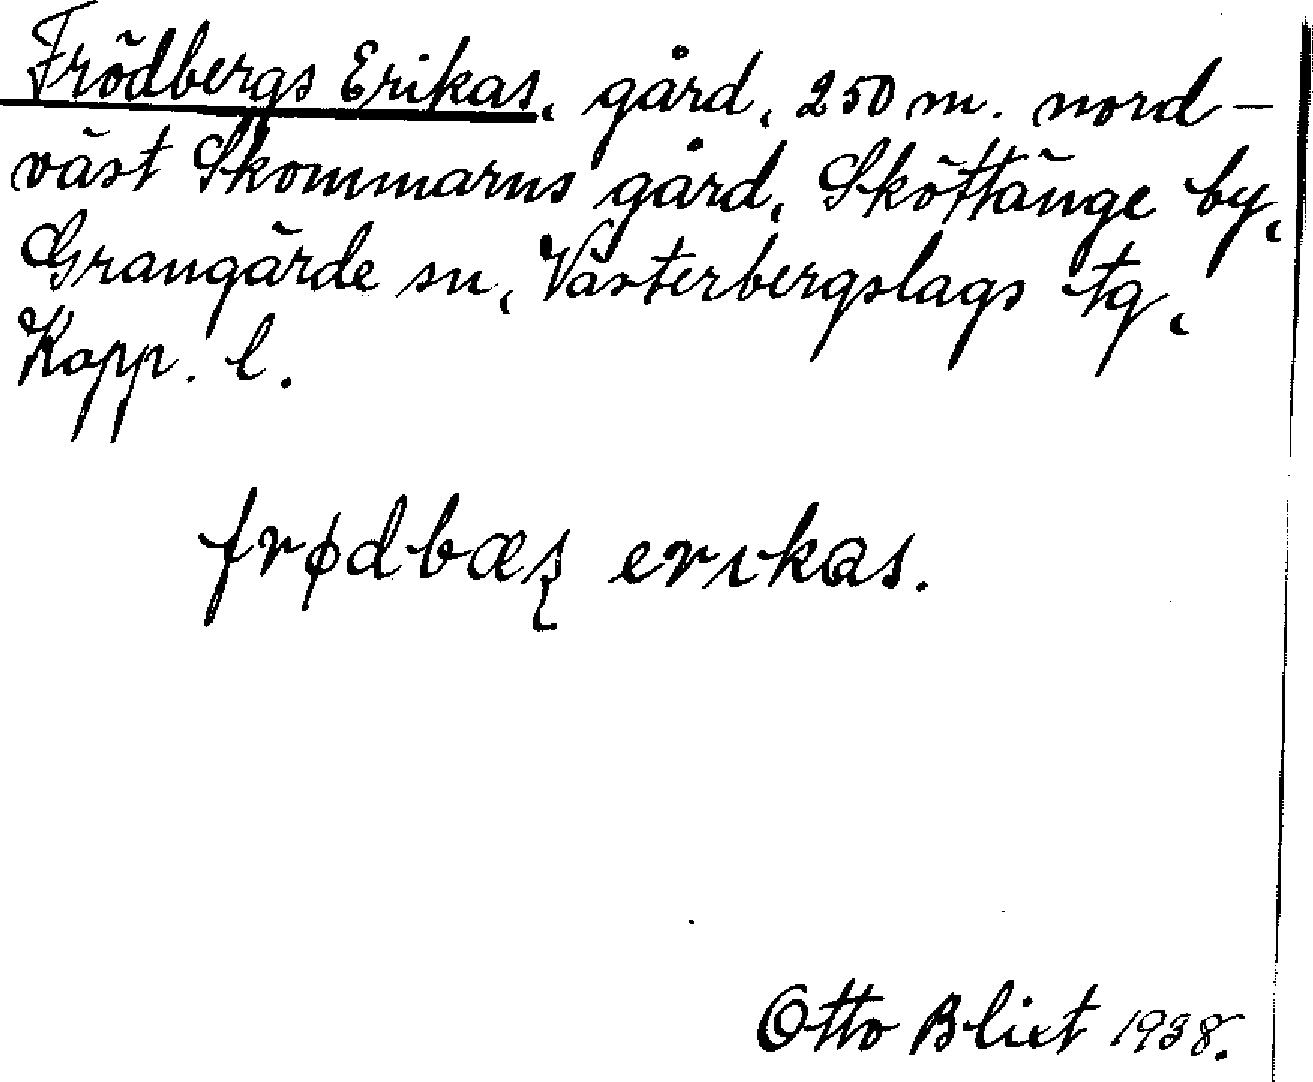 Frödbergs Erikas, gård, 250 m. nord-
väst Skommarns gård, Sköttänge by,
Grangärde sn, Västerbergslags tg,
Kopp. l.
frødbæʂ erıkas.
Otto Blixt 1938.